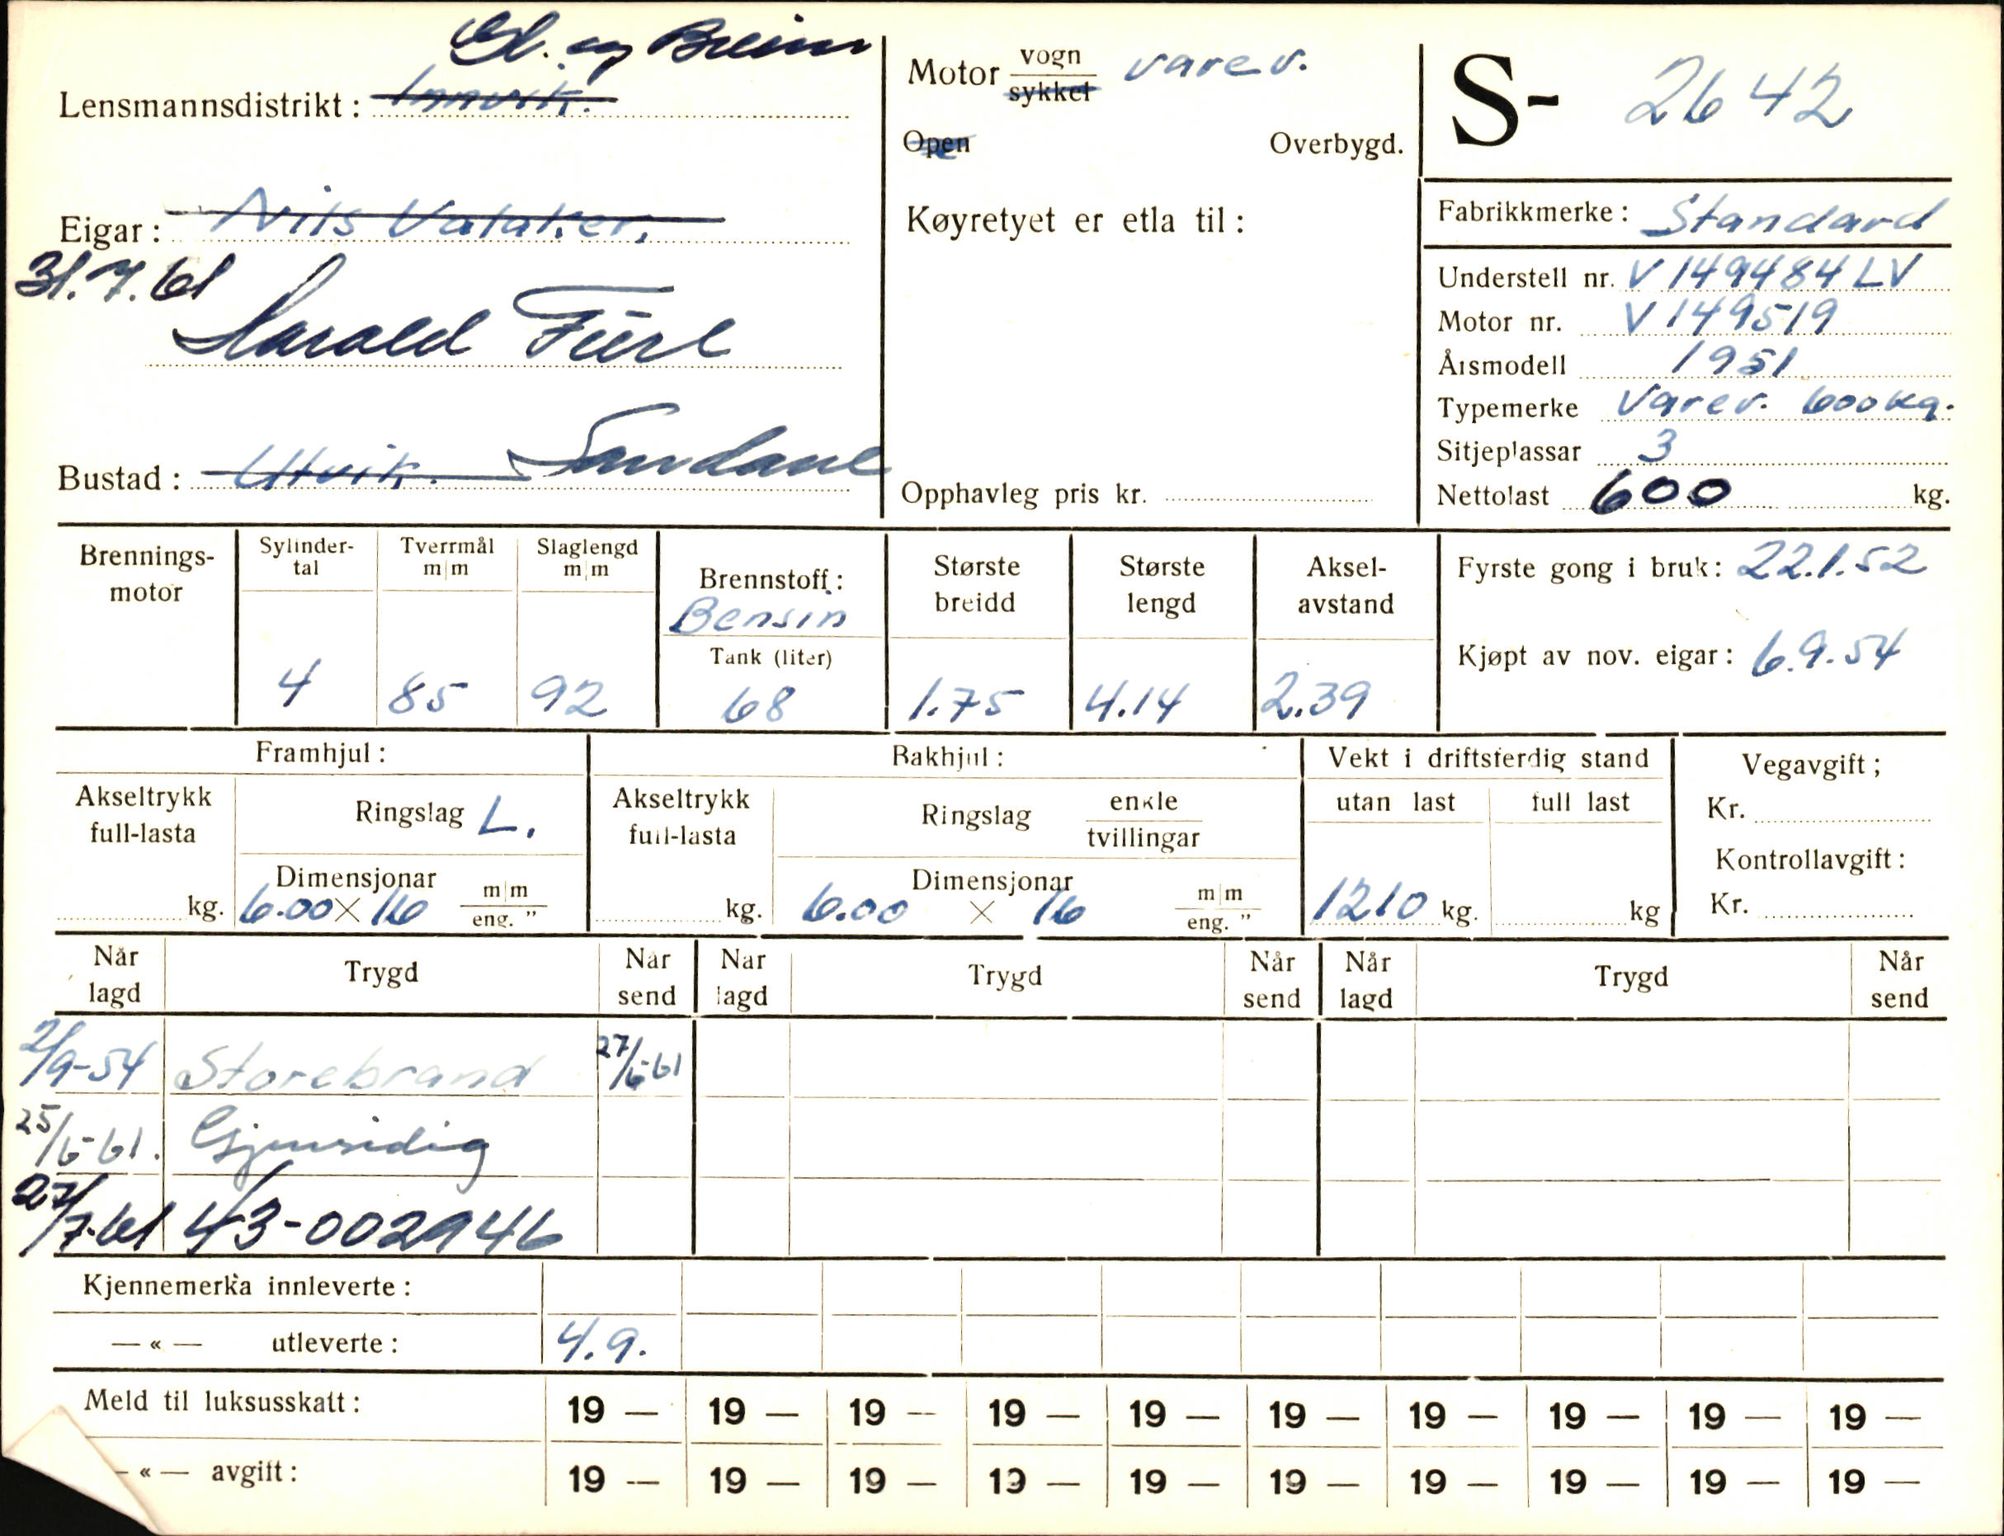 Gl. og Breim
Lensmannsdistrikt: Innvik.
Eigar: Nils Valaker.
31.7.61
Harald
Bustad: Utvik. Sandane
Motor vogn varev.
sykkel
Open Overbygd.
Køyretyet er etla til:
Opphavleg pris kr.
S- 2642
Fabrikkmerke: Standard
Understell nr. V149484LV
Motor nr. V149519
Årsmodell 1951
Typemerke Varev. 600kg.
Sitjeplassar 3
Nettolast 600 kg.
Brennings-
motor
Sylinder-
tal
4
Tverrmål
m|m
85
Slaglengd
m|m
92
Brennstoff:
Bensin
Tank (liter)
68
Største
breidd
1.75
Største
lengd
4.14
Aksel-
avstand
2.39
Fyrste gong i bruk: 22.1.52
Kjøpt av nov. eigar: 6.9.54
Framhjul:
Akseltrykk
full-lasta
kg.
Ringslag L.
Dimensjonar
6.00 × 16 m|m
eng. "
Bakhjul:
Akseltrykk
full-lasta
kg.
Ringslag enkle
tvillingar
Dimensjonar
6.00 × 16 m|m
eng. "
Vekt i driftsferdig stand
utan last full last
1210 kg. kg
Vegavgift;
Kr.
Kontrollavgift:
Kr.
Når lagd Trygd Når send Når lagd Trygd Når send Når lagd Trygd Når send
2/9-54 Storebrand 27/6-61
25/6-61. Gjensidig
27/7-61 43-002946
Kjennemerka innleverte:
— « — utleverte: 4.9.
Meld til luksusskatt: 19 — 19 — 19 — 19 — 19 — 19 — 19 — 19 — 19 — 19 —
— « — avgift: 19 — 19 — 19 — 19 — 19 — 19 — 19 — 19 — 19 — 19 —